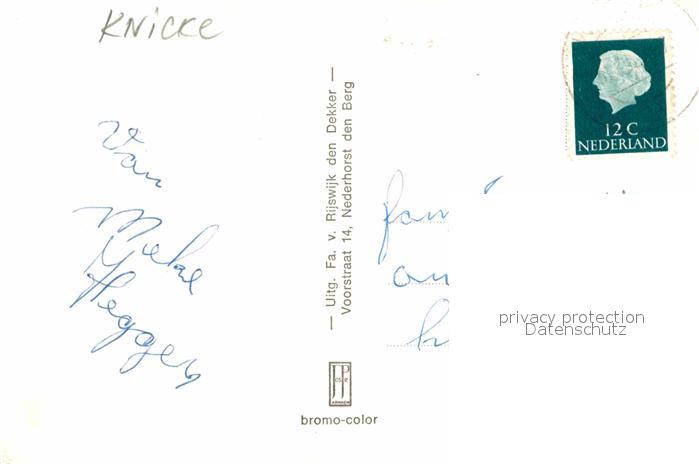 KNICKE
12 C
NEDERLAND
Van
Mieke
Heggers
— Uitg. Fa. v. Rijswijk den Dekker —
Voorstraat 14, Nederhorst den Berg
fam
privacy protection
Datenschutz
JosPe
ARNHEM
bromo-color